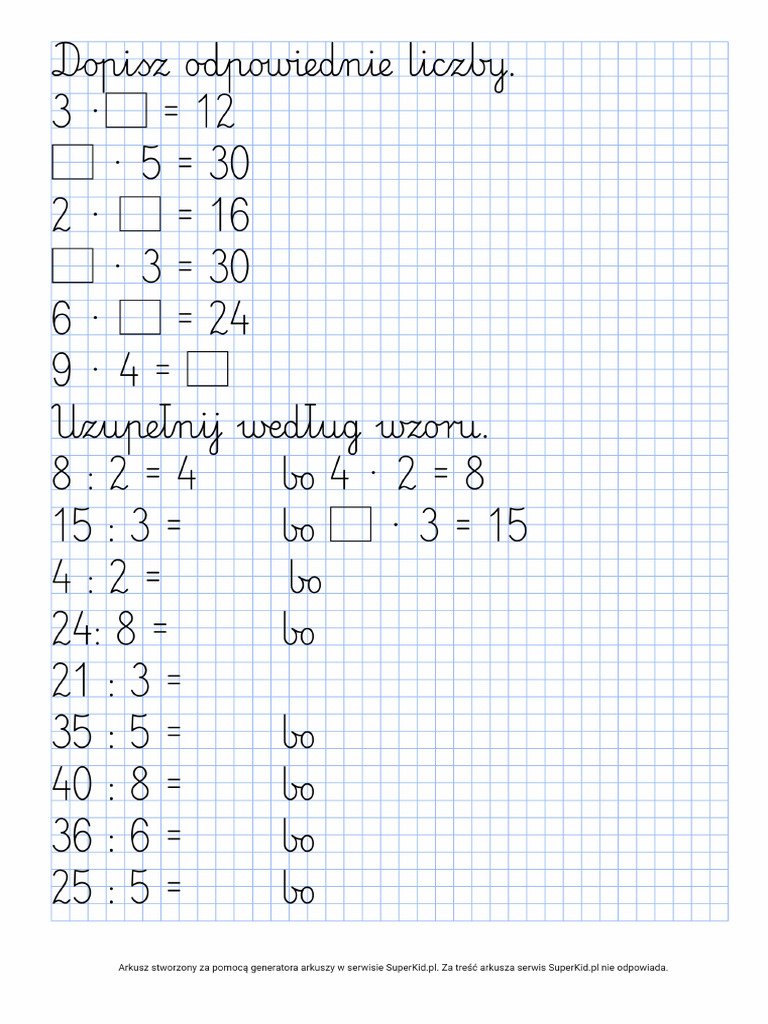 Dopisz odpowiednie liczby.
3 · □ = 12
□ · 5 = 30
2 · □ = 16
□ · 3 = 30
6 · □ = 24
9 · 4 = □
Uzupełnij według wzoru.
8 : 2 = 4 bo 4 · 2 = 8
15 : 3 = bo □ · 3 = 15
4 : 2 = bo
24: 8 = bo
21 : 3 =
35 : 5 = bo
40 : 8 = bo
36 : 6 = bo
25 : 5 = bo
Arkusz stworzony za pomocą generatora arkuszy w serwisie SuperKid.pl. Za treść arkusza serwis SuperKid.pl nie odpowiada.